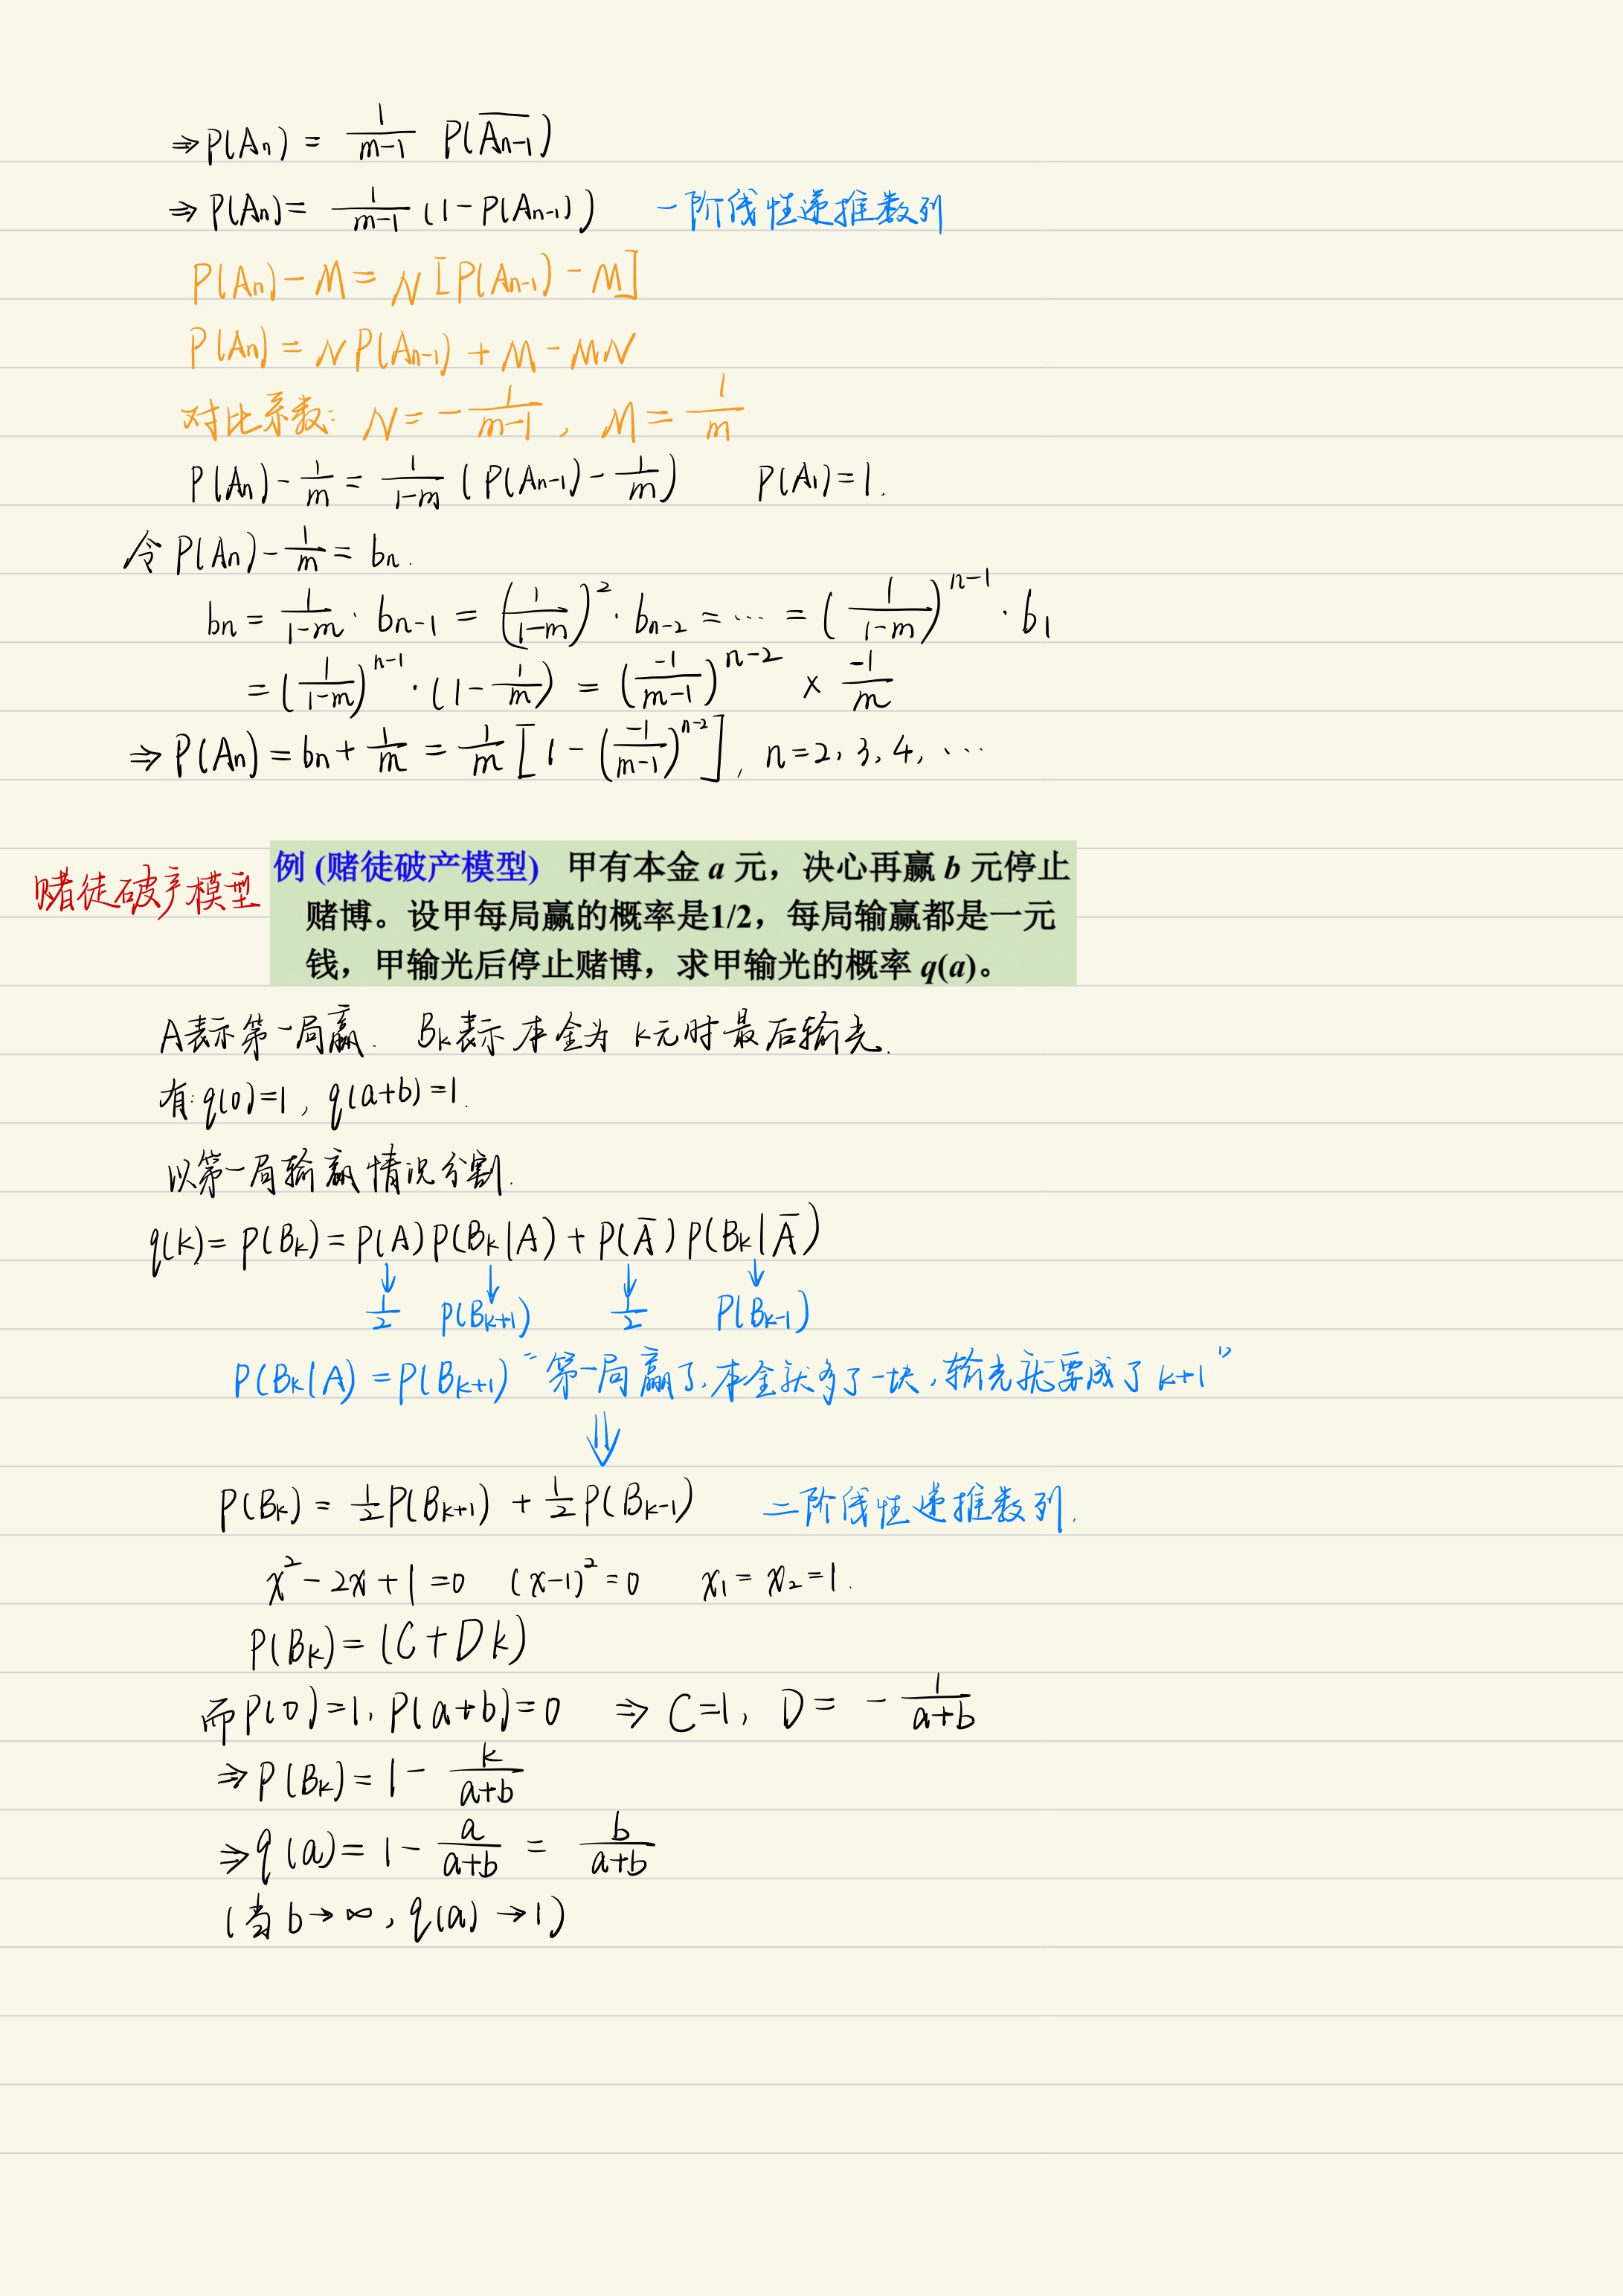 ⇒P(An) = 1/(m-1) P(\overline{An-1})
⇒P(An) = 1/(m-1) (1-P(An-1)) 一阶线性递推数列
P(An)-M=N[P(An-1)-M]
P(An)=NP(An-1)+M-MN
对比系数: N=-1/(m-1), M=1/m
P(An)-1/m = 1/(1-m) (P(An-1)-1/m) P(A1)=1.
令P(An)-1/m = bn.
bn = 1/(1-m) · bn-1 = (1/(1-m))^2 · bn-2 = ··· = (1/(1-m))^{n-1} · b1
= (1/(1-m))^{n-1} · (1-1/m) = (-1/(m-1))^{n-2} × -1/m
⇒P(An)=bn+1/m = 1/m [1-(-1/(m-1))^{n-2}], n=2,3,4,···
赌徒破产模型
例 (赌徒破产模型) 甲有本金 a 元，决心再赢 b 元停止
赌博。设甲每局赢的概率是1/2，每局输赢都是一元
钱，甲输光后停止赌博，求甲输光的概率 q(a)。
A表示第一局赢. Bk表示本金为k元时最后输光.
有:q(0)=1, q(a+b)=1.
以第一局输赢情况分割.
q(k)=P(Bk)=P(A)P(Bk|A)+P(\overline{A})P(Bk|\overline{A})
↓ ↓ ↓ ↓
1/2 P(Bk+1) 1/2 P(Bk-1)
P(Bk|A)=P(Bk+1) “第一局赢了,本金就多了一块,输光就要成了k+1”
⇓
P(Bk) = 1/2 P(Bk+1) + 1/2 P(Bk-1) 二阶线性递推数列.
x^2-2x+1=0 (x-1)^2=0 x1=x2=1.
P(Bk)=(C+Dk)
而P(0)=1, P(a+b)=0 ⇒ C=1, D= -1/(a+b)
⇒P(Bk)=1- k/(a+b)
⇒q(a)=1- a/(a+b) = b/(a+b)
(当b→∞, q(a)→1)